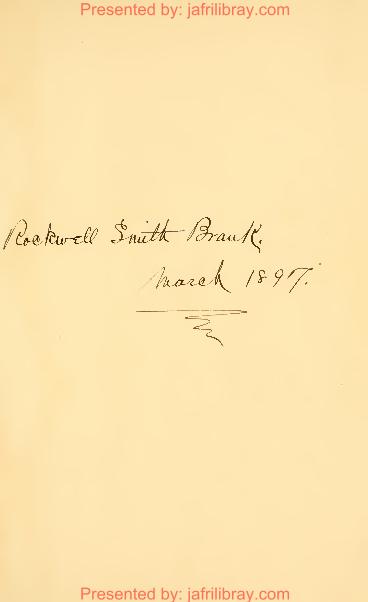 Presented by: jafrilibray.com
Rockwell Smith Brank.
March 1897.
Presented by: jafrilibray.com